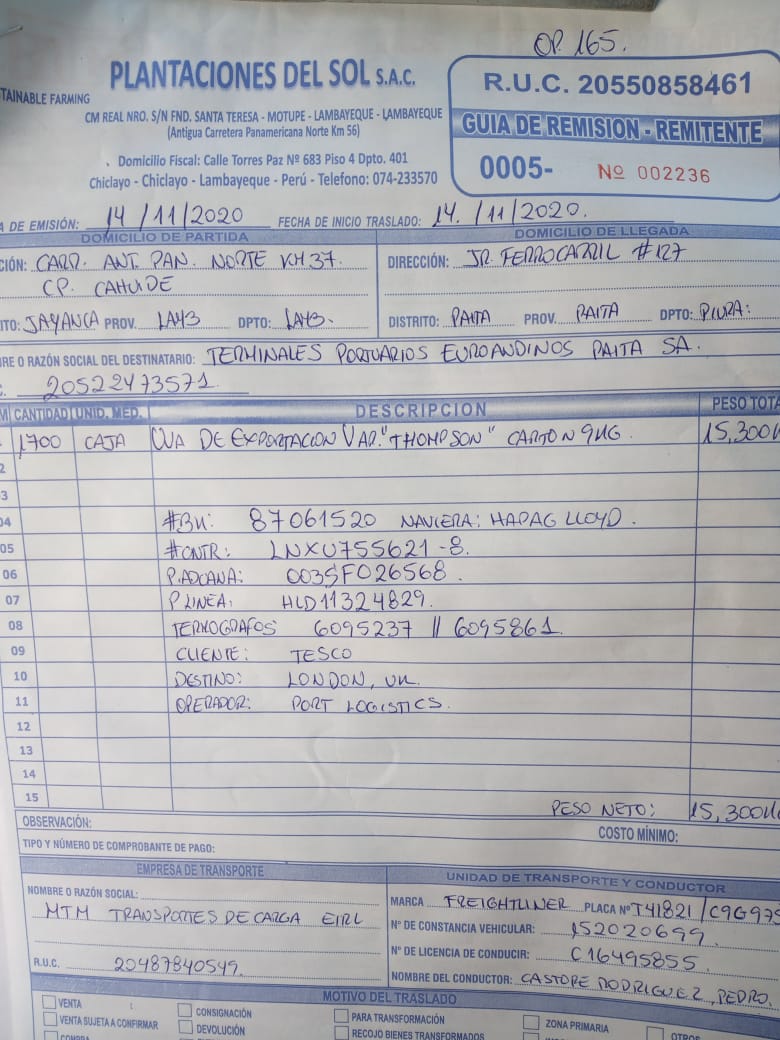 OP. 165.
PLANTACIONES DEL SOL S.A.C.
TAINABLE FARMING
CM REAL NRO. S/N FND. SANTA TERESA - MOTUPE - LAMBAYEQUE - LAMBAYEQUE
(Antigua Carretera Panamericana Norte Km 56)
Domicilio Fiscal: Calle Torres Paz Nº 683 Piso 4 Dpto. 401
Chiclayo - Chiclayo - Lambayeque - Perú - Telefono: 074-233570
R.U.C. 20550858461
GUIA DE REMISION - REMITENTE
0005- Nº 002236
A DE EMISIÓN: 14/11/2020 FECHA DE INICIO TRASLADO: 14./11/2020.
DOMICILIO DE PARTIDA DOMICILIO DE LLEGADA
CIÓN: CARR. ANT. PAN. NORTE KM 37. DIRECCIÓN: JR. FERROCARRIL #127
CP. CAHUIDE
ITO: JAYANCA PROV. LAMB DPTO: LAMB. DISTRITO: PAITA PROV. PAITA DPTO: PIURA:
RE O RAZÓN SOCIAL DEL DESTINATARIO: TERMINALES PORTUARIOS EUROANDINOS PAITA SA.
C. 20522473571.
M CANTIDAD UNID. MED. DESCRIPCION PESO TOTA
1700 CAJA UVA DE EXPORTACION VAR. "THOMPSON" CARTON 9KG. 15,300K
2
3
04 #BK: 87061520 NAVIERA: HAPAG LLOYD.
05 #CNTR: LNXU755621-8.
06 P.ADUANA: 003SF026568.
07 P LINEA: HLD11324829.
08 TERMOGRAFOS 6095237 || 6095861.
09 CLIENTE: TESCO
10 DESTINO: LONDON, UK.
11 OPERADOR: PORT LOGISTICS.
12
13
14
15 PESO NETO: 15,300K
OBSERVACIÓN: COSTO MÍNIMO:
TIPO Y NÚMERO DE COMPROBANTE DE PAGO:
EMPRESA DE TRANSPORTE UNIDAD DE TRANSPORTE Y CONDUCTOR
NOMBRE O RAZÓN SOCIAL: MARCA FREIGHTLINER PLACA Nº T41821/C9G975
MTM TRANSPORTES DE CARGA EIRL Nº DE CONSTANCIA VEHICULAR: 152020699.
Nº DE LICENCIA DE CONDUCIR: C16495855.
R.U.C. 20487840549. NOMBRE DEL CONDUCTOR: CASTOPE RODRIGUEZ, PEDRO.
MOTIVO DEL TRASLADO
VENTA CONSIGNACIÓN PARA TRANSFORMACIÓN ZONA PRIMARIA OTROS
VENTA SUJETA A CONFIRMAR DEVOLUCIÓN RECOJO BIENES TRANSFORMADOS
COMPRA